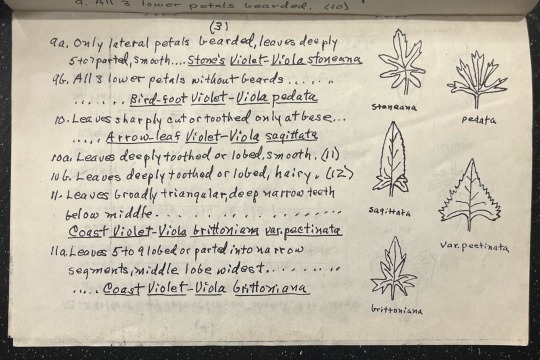 9. All 3 lower petals bearded. (10)
(3)
9a. Only lateral petals bearded, leaves deeply
5 to 7 parted, smooth.... Stone's Violet-Viola stoneana
9b. All 3 lower petals without beards......
...... Bird-foot Violet-Viola pedata
10. Leaves sharply cut or toothed only at base...
..... Arrow-leaf Violet-Viola sagittata
10a. Leaves deeply toothed or lobed, smooth. (11)
10b. Leaves deeply toothed or lobed, hairy. (12)
11. Leaves broadly triangular, deep narrow teeth
below middle. . . . . . . . . . . . . . . . . .
Coast Violet-Viola brittoniana var. pectinata
11a. Leaves 5 to 9 lobed or parted into narrow
segments, middle lobe widest. . . . . . . . .
..... Coast Violet-Viola brittoniana
stoneana
pedata
sagittata
var. pectinata
brittoniana